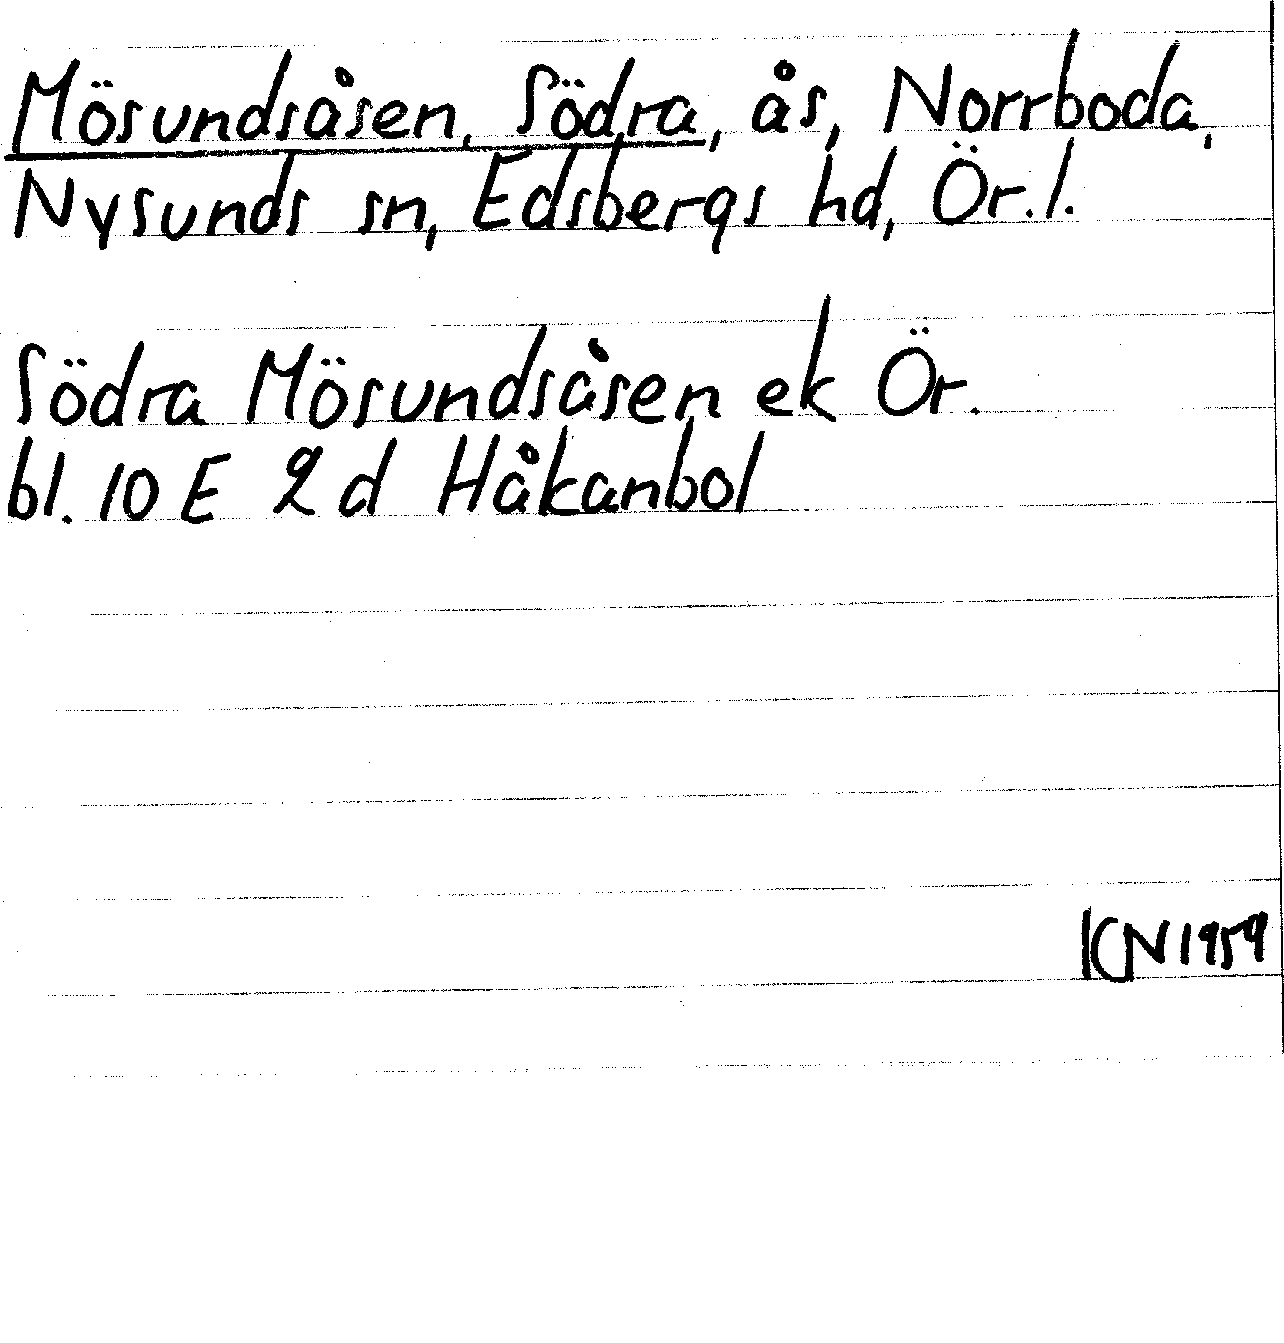 Mösundsåsen, Södra, ås, Norrboda,
Nysunds sn, Edsbergs hd, Ör. l.
Södra Mösundsåsen ek Ör.
bl. 10 E 2 d Håkanbol
KN 1959